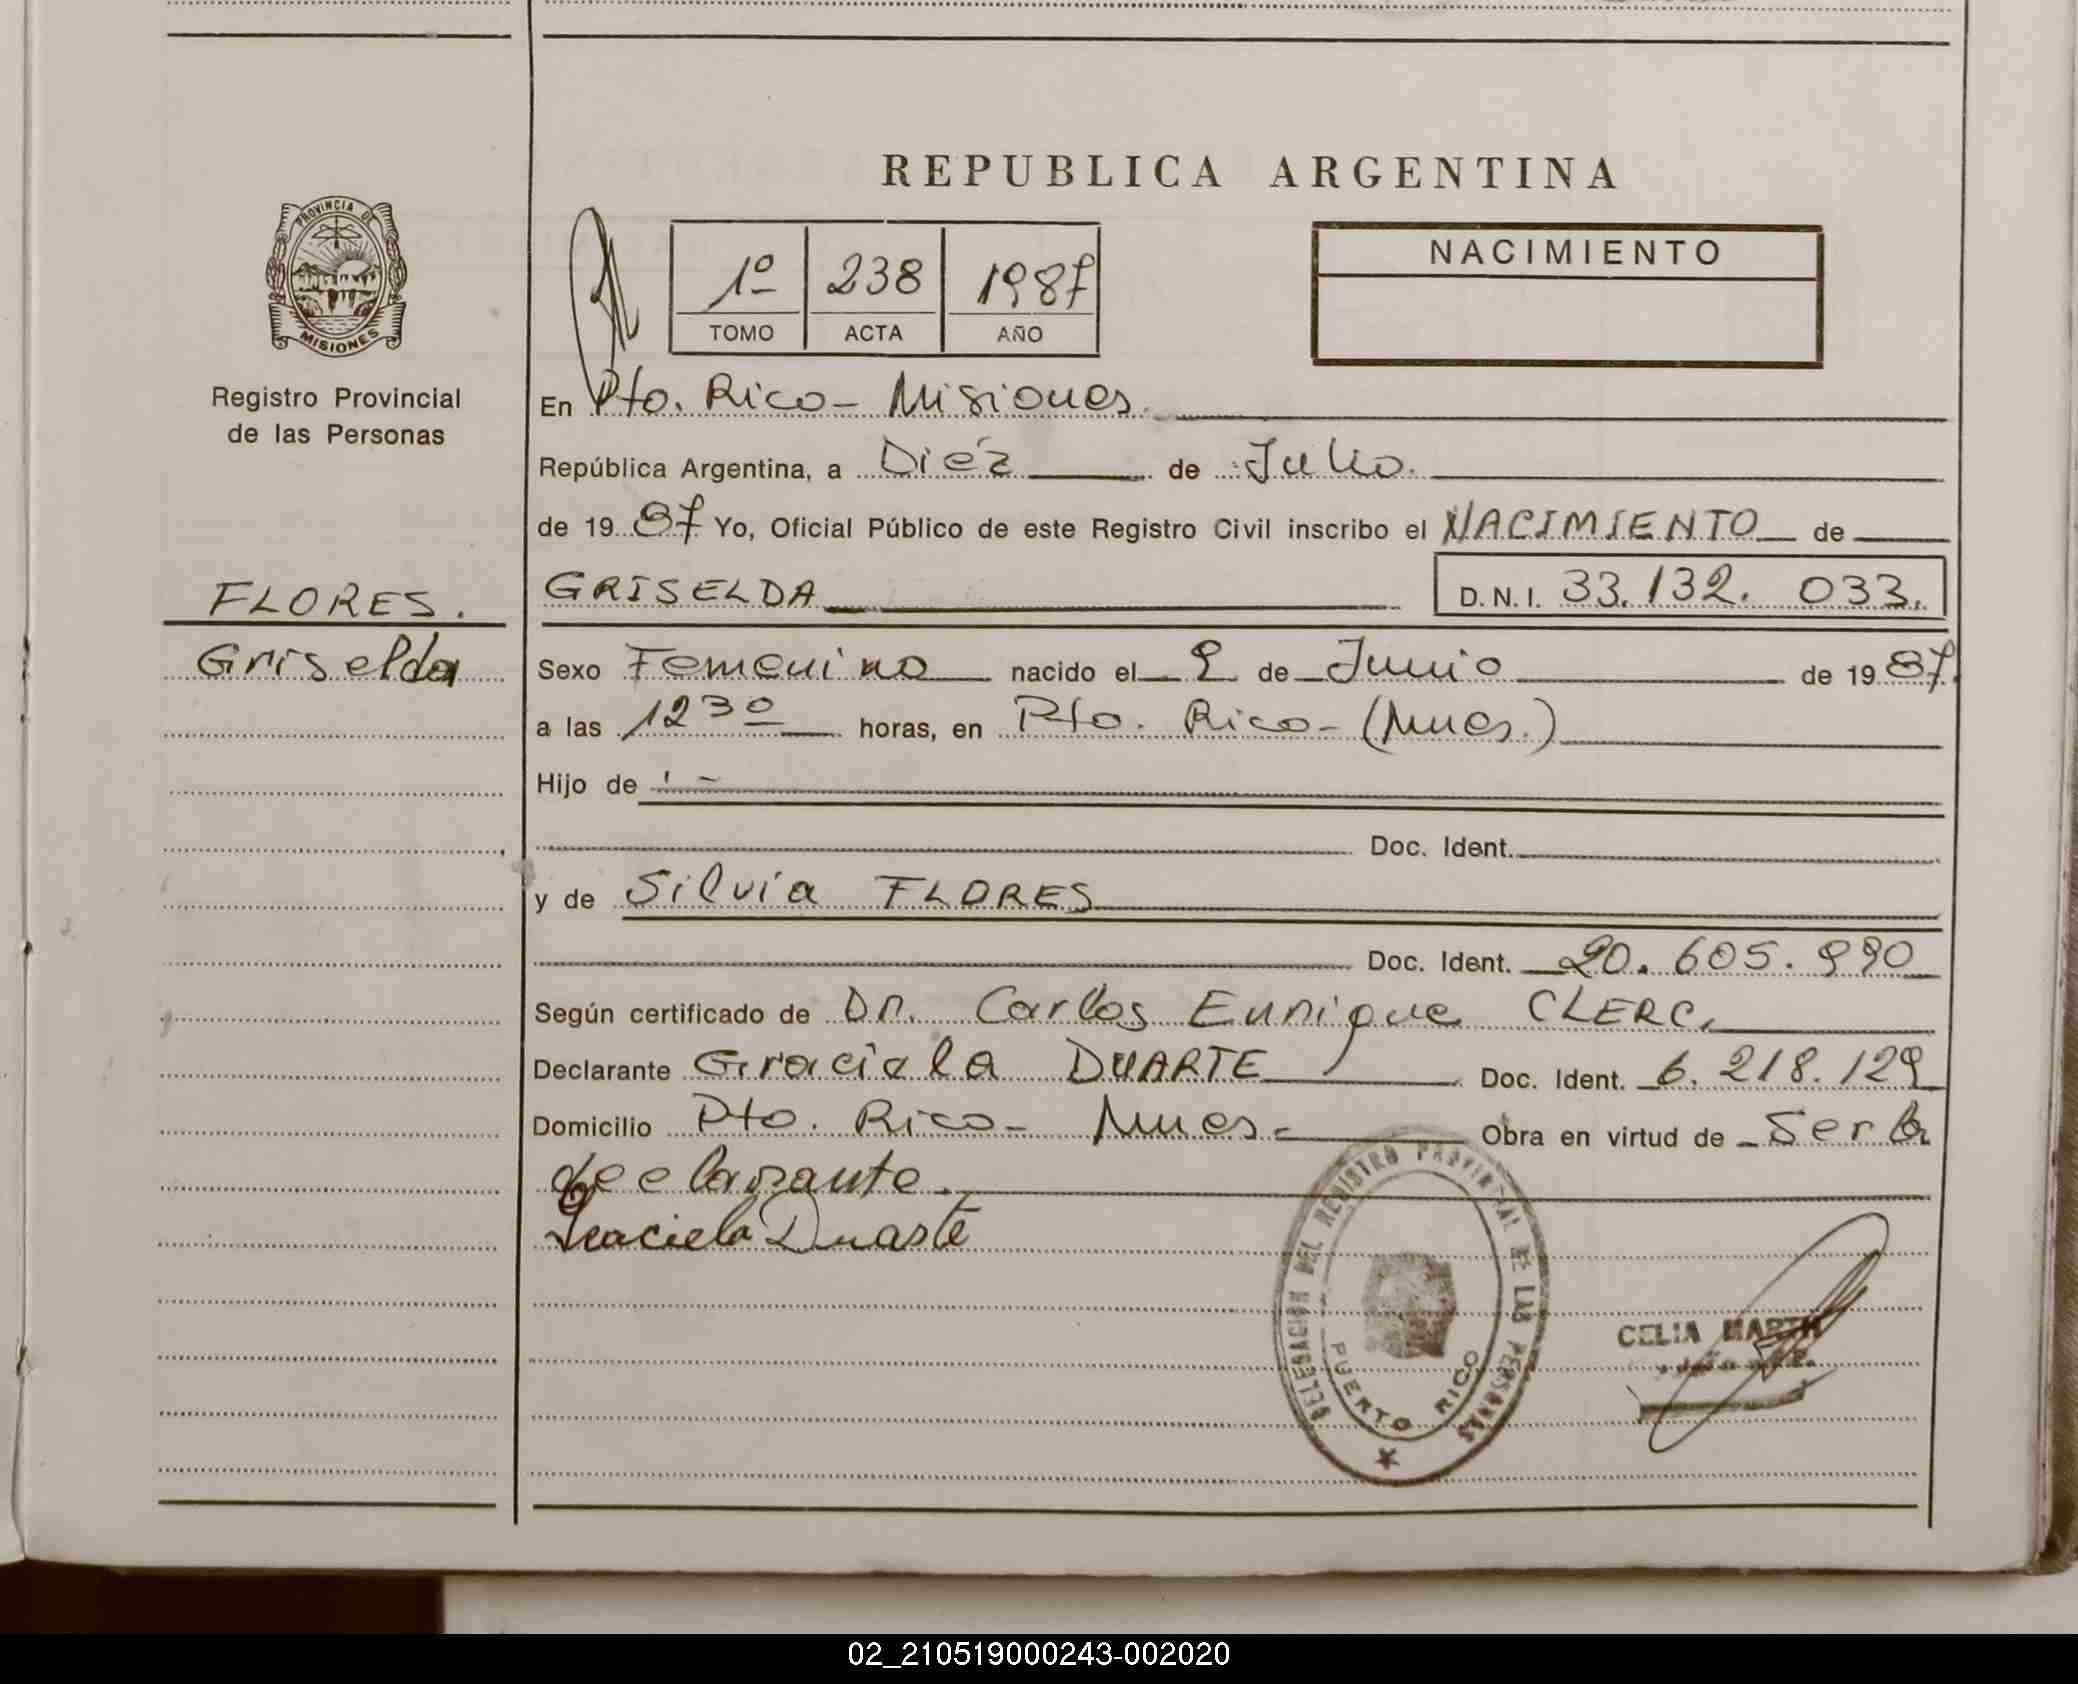 REPUBLICA ARGENTINA
PROVINCIA DE
MISIONES
Registro Provincial
de las Personas
1º 238 1987
TOMO ACTA AÑO
NACIMIENTO
En Pto. Rico - Misiones.
República Argentina, a Diéz de Julio.
de 19 87 Yo, Oficial Público de este Registro Civil inscribo el NACIMIENTO de
FLORES.
GRISELDA D.N.I. 33.132.033.
Griselda
Sexo Femenino nacido el 9 de Junio de 19 87.
a las 12 30 horas, en Pto. Rico - (Mnes.)
Hijo de
Doc. Ident.
y de Silvia FLORES
Doc. Ident. 20.605.990
Según certificado de Dr. Carlos Enrique CLERC.
Declarante Graciela DUARTE Doc. Ident. 6.218.129
Domicilio Pto. Rico - Mnes - Obra en virtud de Ser la
declarante.
Graciela Duarte
DELEGACIÓN DEL REGISTRO PROVINCIAL DE LAS PERSONAS
PUERTO RICO
CELIA
02_210519000243-002020